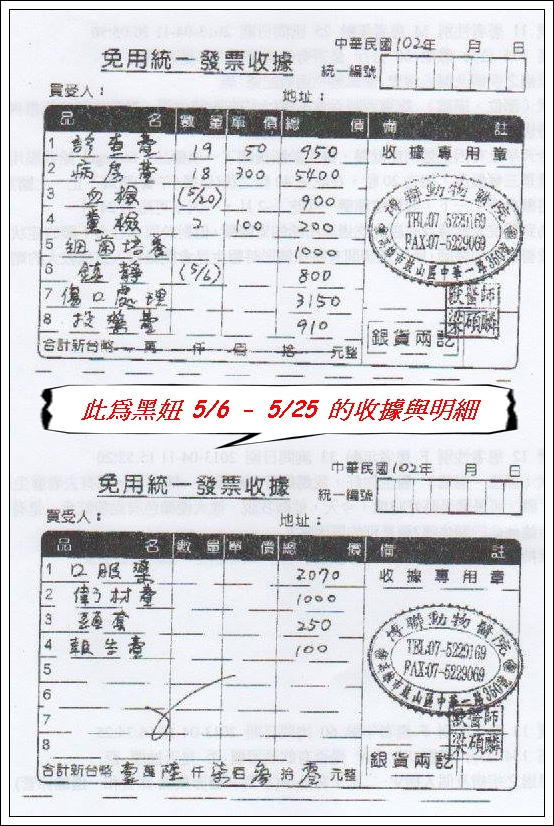 免用統一發票收據
中華民國102年 月 日
統一編號
買受人: 地址:
品 名 數量 單價 總 價 備 註
1 診查費 19 50 950 收據專用章
2 病房費 18 300 5400
3 血檢 (5/20) 900
4 糞檢 2 100 200
5 細菌培養 1000
6 鎮靜 (5/6) 800
7 傷口處理 3150
8 投藥費 910
博聯動物醫院
TEL:07-5229169
FAX:07-5229069
高雄市鼓山區中華一路360號
獸醫師
梁碩麟
銀貨兩訖
合計新台幣 萬 仟 佰 拾 元整
此為黑妞 5/6 - 5/25 的收據與明細
免用統一發票收據
中華民國102年 月 日
統一編號
買受人: 地址:
品 名 數量 單價 總 價 備 註
1 口服藥 2070 收據專用章
2 衛材費 1000
3 250
4 費 100
5
6
7
8
博聯動物醫院
TEL:07-5229169
FAX:07-5229069
高雄市鼓山區中華一路360號
獸醫師
梁碩麟
銀貨兩訖
合計新台幣 壹萬陸仟柒佰參拾零元整